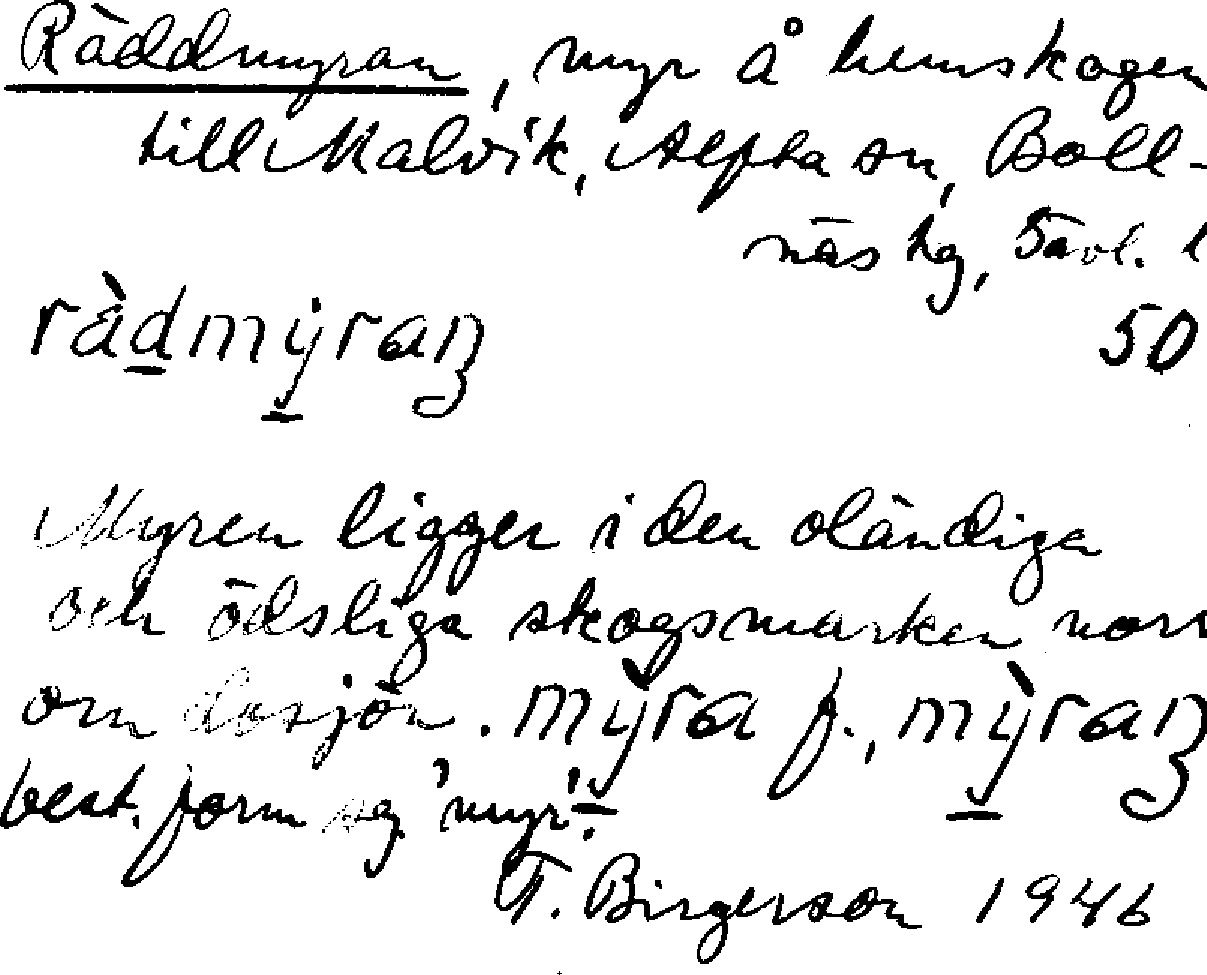 Räddmyran, myr å hemskogen
till Malvik, Alfta sn, Boll-
näs tg, Gävl. l
50
rä̀dmyraɳ
Myren ligger i den oländiga
och ödsliga skogsmarken norr
om . mỳra f., mỳraɳ
best. form sg. 'myr'.
T. Birgerson 1946